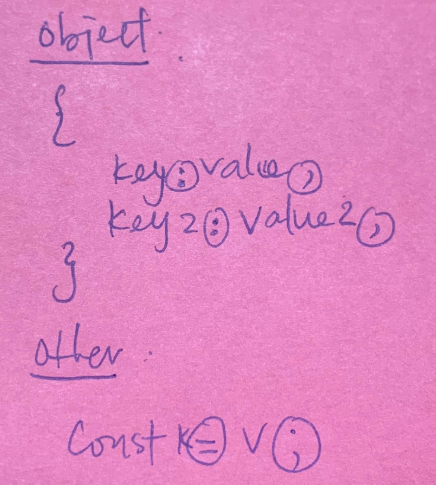 object.
{
key:value,
key2:value2,
}
other.
const k=v;